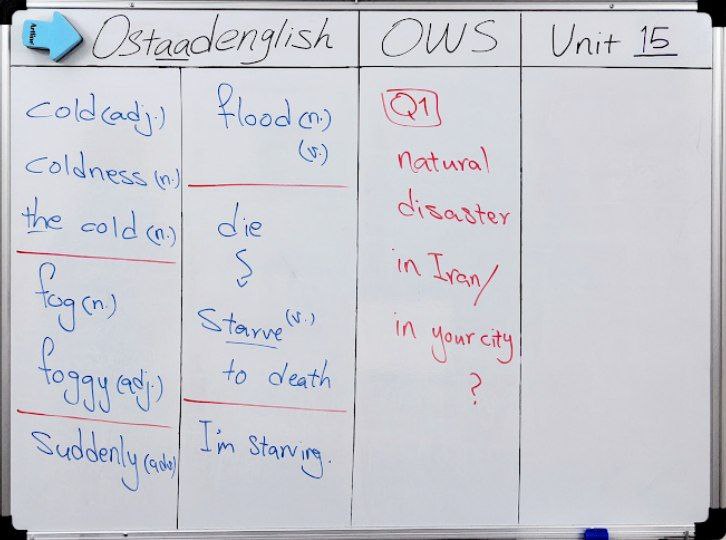 Ostaadenglish
OWS
Unit 15
cold (adj.)
coldness (n.)
the cold (n.)
fog (n.)
foggy (adj.)
suddenly (adv)
flood (n.)
(v.)
die
starve (v.)
to death
I'm starving.
Q1
natural
disaster
in Iran/
in your city
?